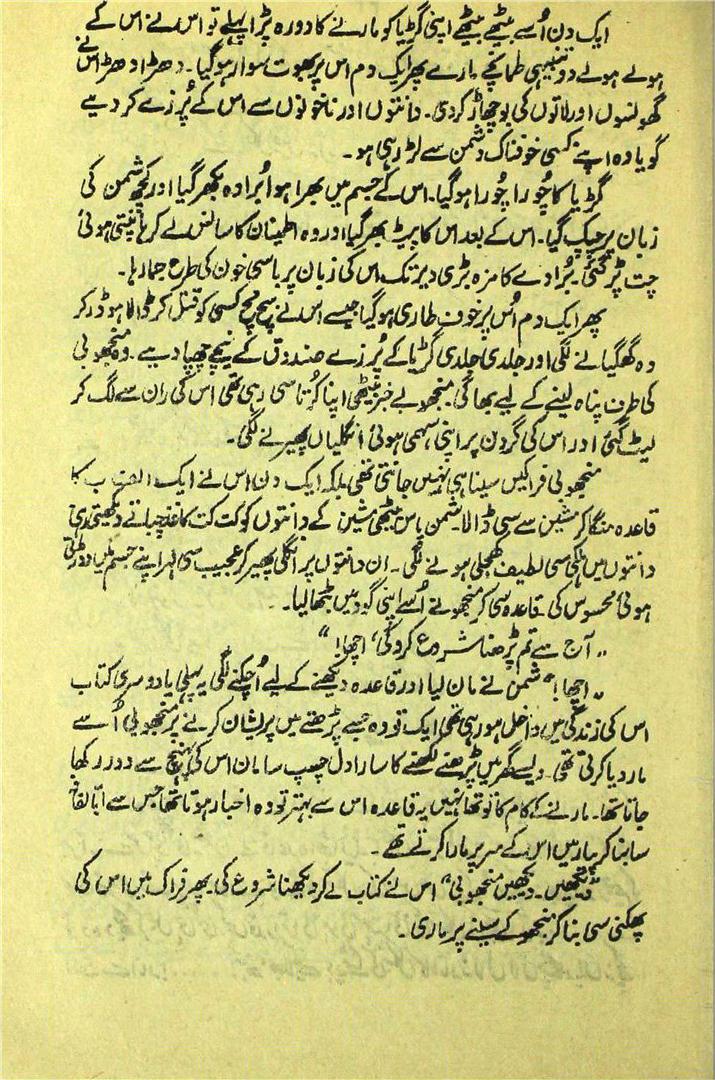 ایک دن اُسے بیٹھے بیٹھے اپنی گڑیا کو مارنے کا دورہ پڑا پہلے تو اس نے اس کے
ہولے ہولے دو تنبیہی طمانچے مارے پھر ایک دم اس پر بھوت سوار ہو گیا۔ دھڑا دھڑ اس نے
گھونسوں اور لاتوں کی بوچھاڑ کر دی۔ دانتوں اور ناخونوں سے اس کے پُرزے کر دیے
گویا وہ اپنے کسی خوفناک دشمن سے لڑ رہی ہو۔
گڑیا کا چُورا چُورا ہو گیا۔ اس کے جسم میں بھرا ہوا بُرادہ بکھر گیا اور کچھ شمن کی
زبان پر چپک گیا۔ اس کے بعد اس کا پیٹ بھر گیا اور وہ اطمینان کا سانس لے کر ہانپتی ہوئی
چت پڑ گئی۔ بُرادے کا مزہ بڑی دیر تک اس کی زبان پر باسی خون کی طرح جما رہا۔
پھر ایک دم اُس پر خوف طاری ہو گیا جیسے اس نے سچ مچ کسی کو قتل کر ڈالا ہو ڈر کر
وہ گھگیانے لگی اور جلدی جلدی گڑیا کے پُرزے صندوق کے نیچے چھپا دیے۔ وہ منجھو بی
کی طرف پناہ لینے کے لیے بھاگی منجھو بے خبر بیٹھی اپنا کُرتا سی رہی تھی اس کی ران سے لگ کر
لیٹ گئی اور اس کی گردن پر اپنی سہمی ہوئی انگلیاں پھیرنے لگی۔
منجھو بی فراکیں سینا ہی نہیں جانتی تھی بلکہ ایک دن اس نے ایک الف ب کا
قاعدہ منگا کر مشین سے سی ڈالا۔ شمن پاس بیٹھی مشین کے دانتوں کو کٹ کٹ کاغذ چباتے دیکھتی رہی
دانتوں میں ہلکی سی لطیف کھجلی ہونے لگی۔ ان دانتوں پر انگلی پھیر کر عجیب سی لہر اپنے جسم میں دوڑتی
ہوئی محسوس کی۔ قاعدہ سی کر منجھو نے اُسے اپنی گود میں بٹھا لیا۔
"آج سے تم پڑھنا شروع کرو گی، اچھا!"
"اچھا!" شمن نے مان لیا اور قاعدہ دیکھنے کے لیے اُچکنے لگی یہ پہلی یا دوسری کتاب
اس کی زندگی میں داخل ہو رہی تھی ایک تو وہ جسے پڑھتے میں پریشان کرنے پر منجھو بی اُسے
مار دیا کرتی تھی۔ ویسے گھر میں پڑھنے لکھنے کا سارا دل چسپ سامان اس کی پہنچ سے دور رکھا
جاتا تھا۔ مارنے کے کام کا تو تھا نہیں یہ قاعدہ اس سے بہتر تو وہ اخبار ہوتا تھا جس سے ابّا لفافہ
سا بنا کر پیار میں اس کے سر پر مارا کرتے تھے۔
"دیکھیں۔ دیکھیں منجھو بی" اس نے کتاب لے کر دیکھنا شروع کی۔ پھر فراک میں اس کی
پھکنی سی بنا کر منجھو کے سینے پر ماری۔